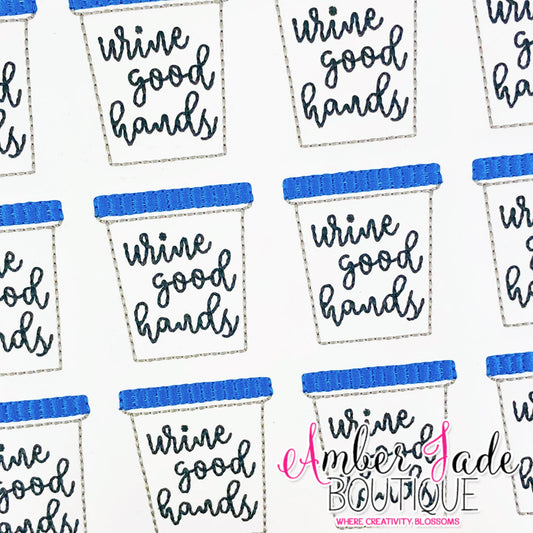 urine
good
hands
urine
good
hands
urine
good
hands
urine
good
hands
urine
good
hands
urine
good
Amber Jade
BOUTIQUE
WHERE CREATIVITY BLOSSOMS